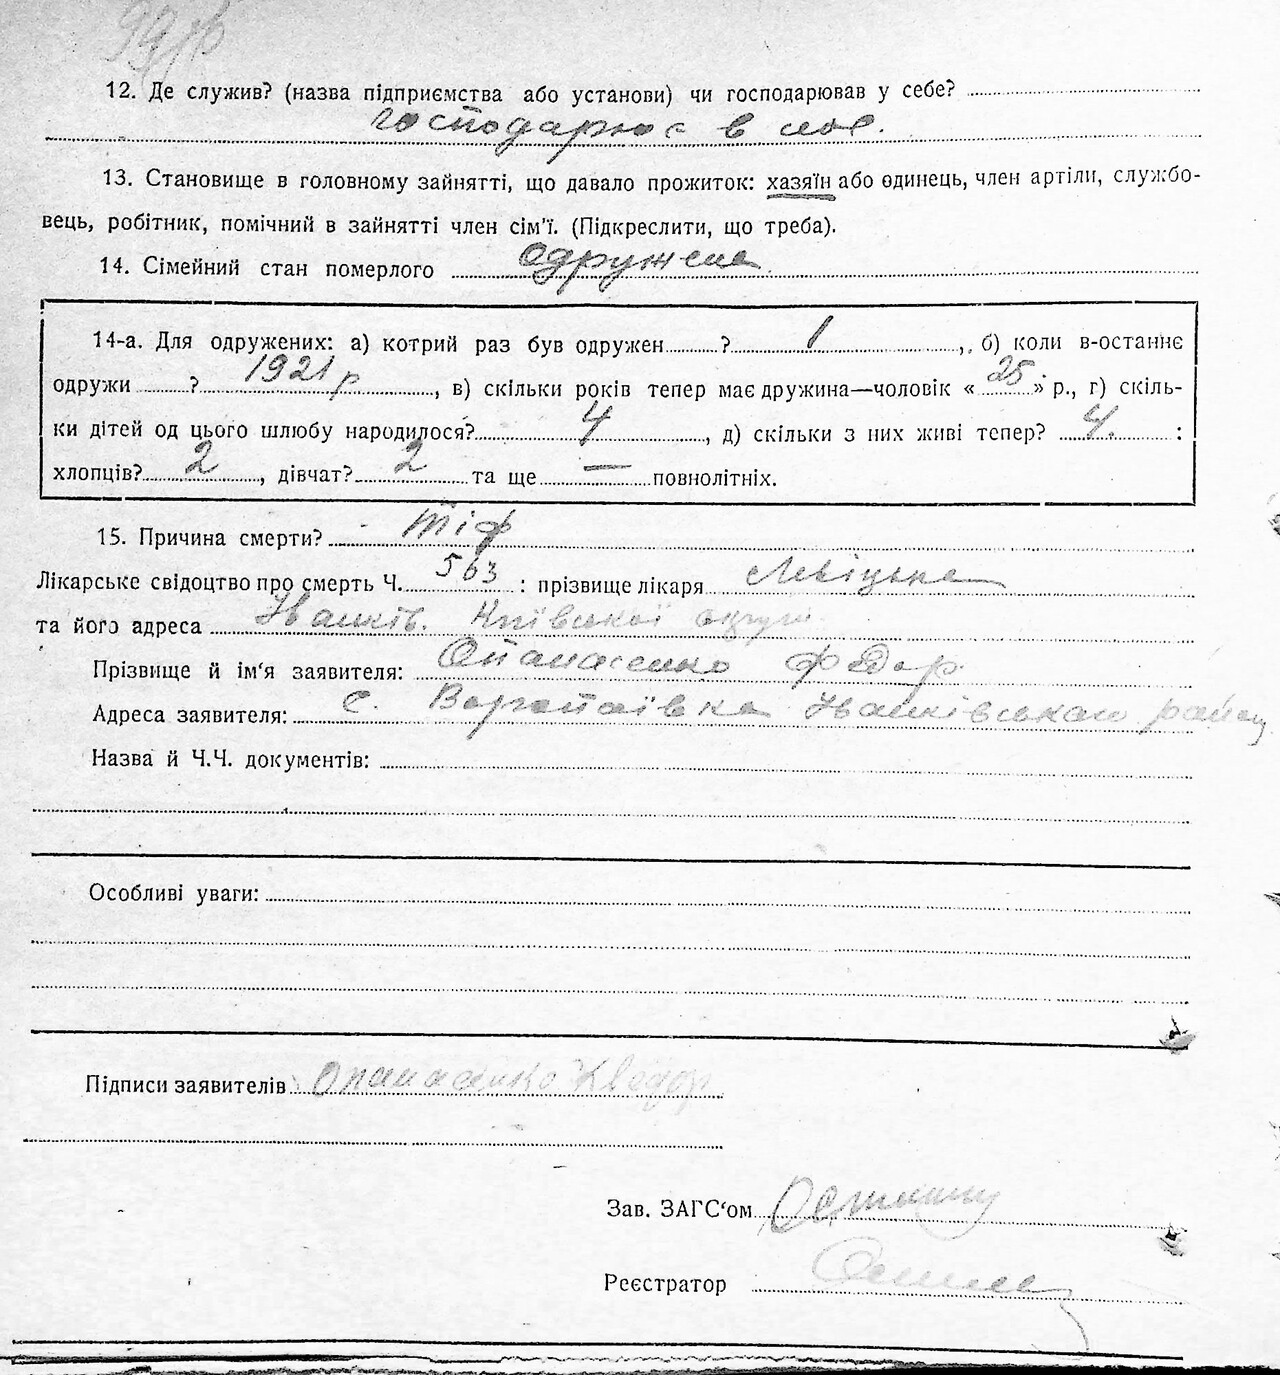 12. Де служив? (назва підприємства або установи) чи господарював у себе?
господарює в селі.
13. Становище в головному зайнятті, що давало прожиток: хазяїн або одинець, член артіли, службо-
вець, робітник, помічний в зайнятті член сім'ї. (Підкреслити, що треба).
14. Сімейний стан померлого одружена
14-а. Для одружених: а) котрий раз був одружен ? 1 , б) коли в-останнє
одружи ? 1921 р , в) скільки років тепер має дружина—чоловік « 25 » р., г) скіль-
ки дітей од цього шлюбу народилося? 4 , д) скільки з них живі тепер? 4. :
хлопців? 2 , дівчат? 2 та ще — повнолітніх.
15. Причина смерти? тіф
Лікарське свідоцтво про смерть Ч. 563 : прізвище лікаря Левіцька
та його адреса Іванків. Київської округи
Прізвище й ім'я заявителя: Опанасенко Федор
Адреса заявителя: с. Воропаївка Іванківського району
Назва й Ч.Ч. документів:
Особливі уваги:
Підписи заявителів Опанасенко Хведор
Зав. ЗАГС'ом
Реєстратор